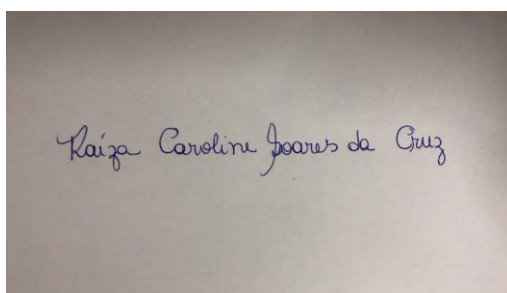 Raíza Caroline Soares da Cruz